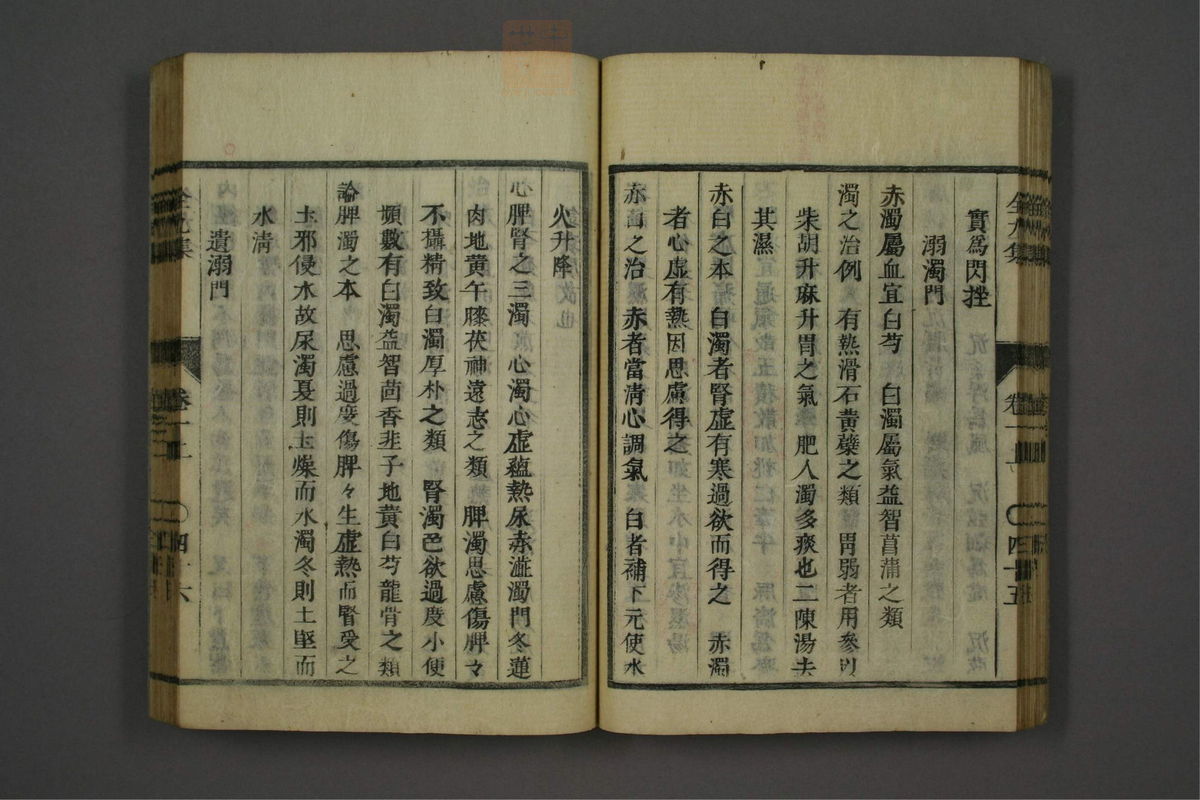 實爲閃挫
溺濁門
赤濁屬血宜白芍　白濁屬氣益智菖蒲之類
濁之治例　有熱滑石黃蘗之類　胃弱者用參以
柴胡升麻升胃之氣　肥人濁多痰也二陳湯去
其濕
赤白之本　白濁者腎虛有寒過欲而得之　赤濁
者心虛有熱因思慮得之
赤白之治　赤者當清心調氣　白者補下元使水
卷一上　〇四十五
火升降
心脾腎之三濁　心濁心虛蘊熱尿赤澁濁門冬蓮
肉地黃午膝茯神遠志之類　脾濁思慮傷脾々
不攝精致白濁厚朴之類　腎濁色欲過度小便
頻數有白濁益智茴香韭子地黃白芍龍骨之類
論脾濁之本　思慮過度傷脾々生虛熱而腎受之
土邪侵水故尿濁夏則土燥而水濁冬則土堅而
水清
遺溺門
全九集　卷一上　〇四十六